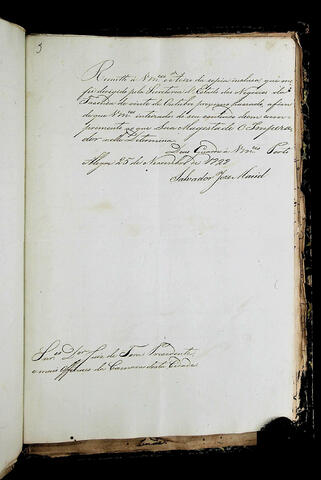 3
Remetto á V.mces o theor da copia inclusa, que me
foi dirigida pela Secretaria d'Estado dos Negocios da
Fazenda de vinte de Outubro proximo passado, afim
de que V.mces intirados do seu contheudo deem cum-
primento ao que Sua Magestade O Impera-
dor nella Determina.
Deos Guarde a V.mces Porto
Alegre 25 de Novembro de 1822
Salvador Joze Maciel
Snr.es D.or Juiz de Fora Prezidente,
e mais Officiaes da Camara desta Cidade